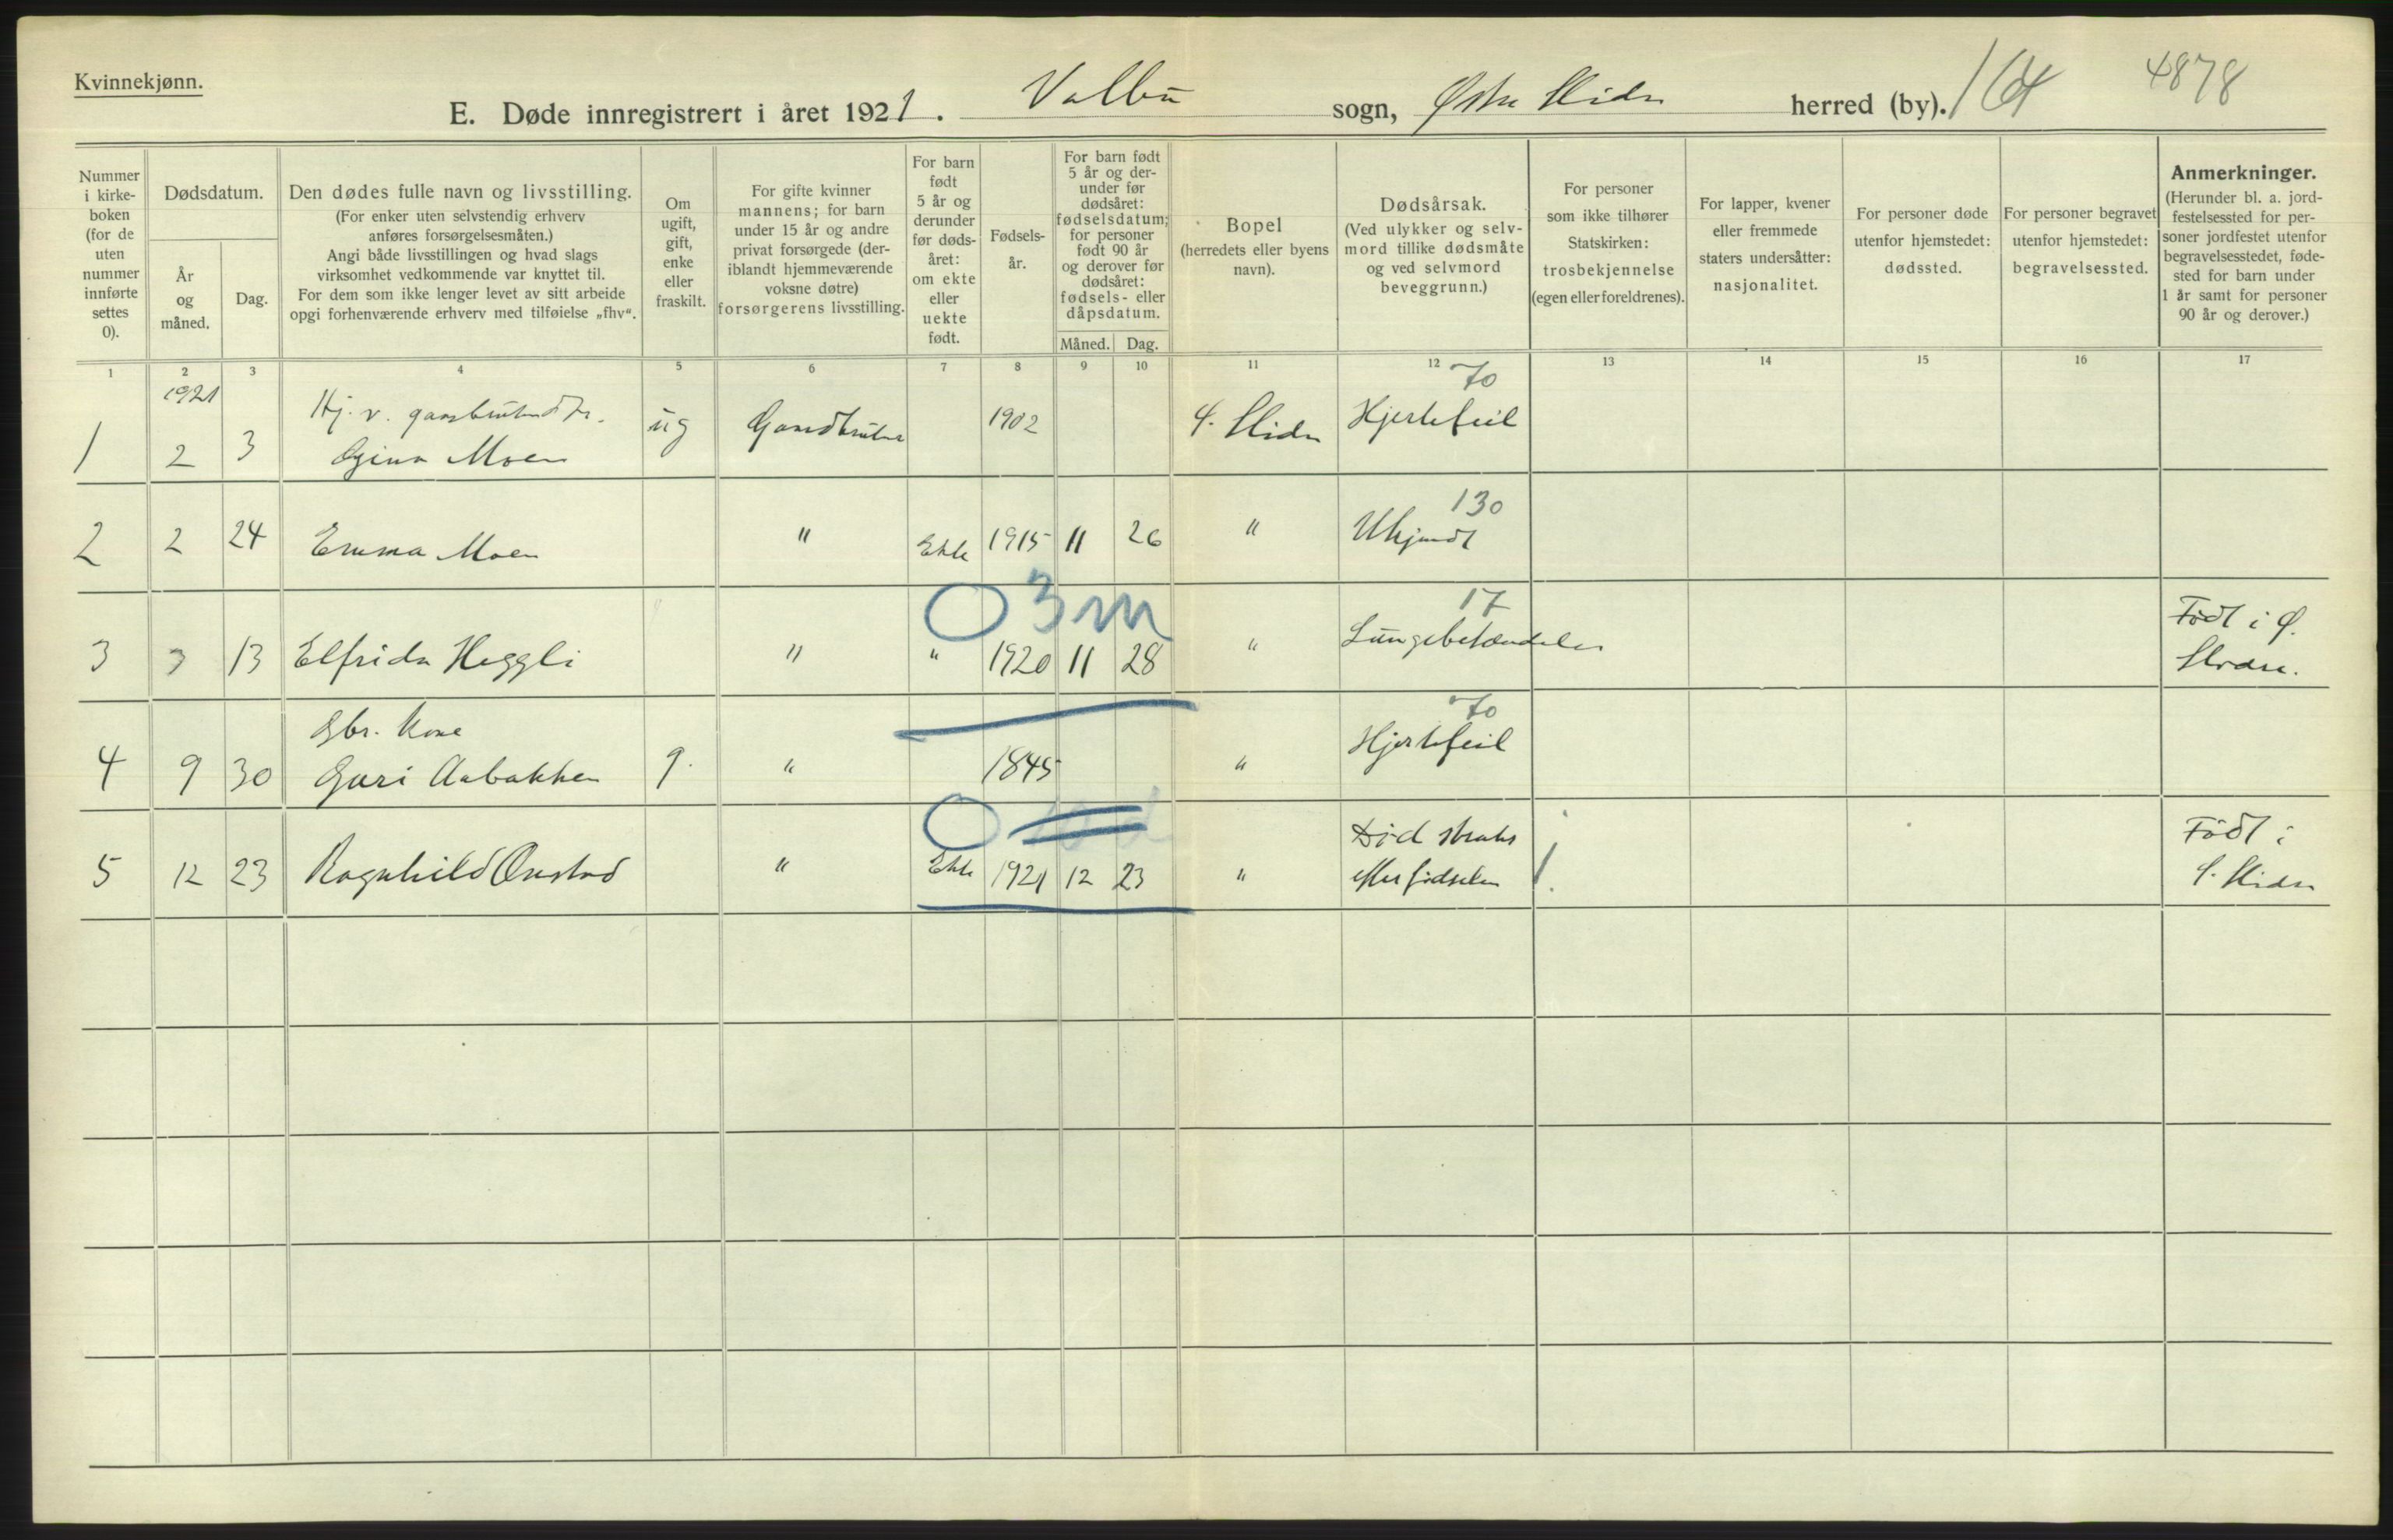 Kvinnekjønn.
E. Døde innregistrert i året 1921. Volbu sogn, Østre Slidre herred (by). 164 4878
Nummer
i kirke-
boken
(for de
uten
nummer
innførte
settes
0).
Dødsdatum.
År
og
måned.
Dag.
Den dødes fulle navn og livsstilling.
(For enker uten selvstendig erhverv
anføres forsørgelsesmåten.)
Angi både livsstillingen og hvad slags
virksomhet vedkommende var knyttet til.
For dem som ikke lenger levet av sitt arbeide
opgi forhenværende erhverv med tilføielse „fhv“.
Om
ugift,
gift,
enke
eller
fraskilt.
For gifte kvinner
mannens; for barn
under 15 år og andre
privat forsørgede (der-
iblandt hjemmeværende
voksne døtre)
forsørgerens livsstilling.
For barn
født
5 år og
derunder
før døds-
året:
om ekte
eller
uekte
født.
Fødsels-
år.
For barn født
5 år og der-
under før
dødsåret:
fødselsdatum;
for personer
født 90 år
og derover før
dødsåret:
fødsels- eller
dåpsdatum.
Måned. Dag.
Bopel
(herredets eller byens
navn).
Dødsårsak.
(Ved ulykker og selv-
mord tillike dødsmåte
og ved selvmord
beveggrunn.)
For personer
som ikke tilhører
Statskirken:
trosbekjennelse
(egen eller foreldrenes).
For lapper, kvener
eller fremmede
staters undersåtter:
nasjonalitet.
For personer døde
utenfor hjemstedet:
dødssted.
For personer begravet
utenfor hjemstedet:
begravelsessted.
Anmerkninger.
(Herunder bl. a. jord-
festelsessted for per-
soner jordfestet utenfor
begravelsesstedet, føde-
sted for barn under
1 år samt for personer
90 år og derover.)
1 2 3 4 5 6 7 8 9 10 11 12 13 14 15 16 17
1921 70
Hj. v. gaardbruker dtr.
1 2 3 Gina Moen ug Gaardbruker 1902 Ø. Slidre Hjertefeil
130
2 2 24 Emma Moen " Ekte 1915 11 26 " Ukjendt
O 3 m 17
3 3 13 Elfrida Heggli " " 1920 11 28 " Lungebetændelse Født i Ø.
Slidre.
70
Gbr. Kone
4 9 30 Guri Aabakken g. " 1845 " Hjertefeil
O
5 12 23 Ragnhild Onstad " Ekte 1921 12 23 " Død straks
efter fødselen
Født i
Ø. Slidre